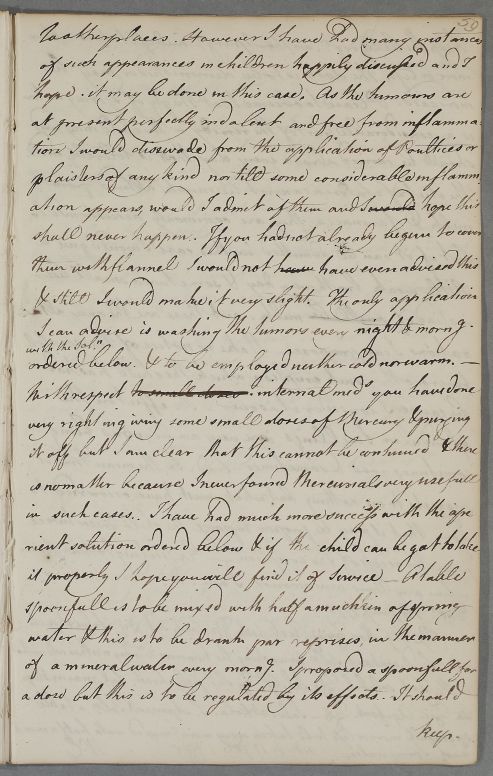 59
to other places. However I have had many instances
of such appearances in children happily discussed and I
hope it may be done in this case. As the tumours are
at present perfectly indolent and free from inflamma-
tion I would disswade from the application of Poultices or
plaisters of any kind nor till some considerable inflamm-
ation appears, would I admit of them and I would hope this
shall never happen. If you had not already begun to cover
them with flannel I would not have have even advised this
& still I would make it very slight. The only application
I can advise is washing the tumors every night & morng.
with the Soln
ordered below. & to be employed neither cold nor warm. —
With respect to small doses. internal meds you have done
very right in giving some small doses of Mercury & purging
it off but I am clear that this cannot be continued & there
is no matter because I never found Mercurials very usefull
in such cases. I have had much more success with the ape
rient solution ordered below & if the child can be got to take
it properly I hope you will find it of Service — A table
spoonfull is to be mixed with half a mutchkin of spring
water & this is to be drank par reprises, in the manner
of a mineral water every morng. I proposed a spoonfull for
a dose but this is to be regulated by its effects. It should
keep.